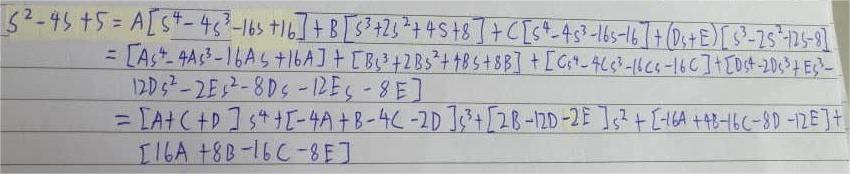 s²-4s+5 = A[s⁴-4s³-16s+16]+B[s³+2s²+4s+8]+C[s⁴-4s³-16s-16]+(Ds+E)[s³-2s²-12s-8]
= [As⁴-4As³-16As+16A]+[Bs³+2Bs²+4Bs+8B]+[Cs⁴-4Cs³-16Cs-16C]+[Ds⁴-2Ds³+Es³-
12Ds²-2Es²-8Ds-12Es-8E]
= [A+C+D]s⁴+[-4A+B-4C-2D]s³+[2B-12D-2E]s²+[-16A+4B-16C-8D-12E]+
[16A+8B-16C-8E]